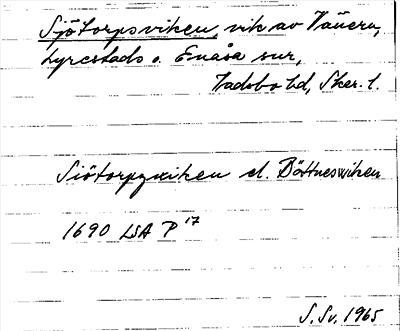 Sjötorpsviken, vik av Vänern,
Lyrestads o. Enåsa snr,
Vadsbo hd, Skar. l.
Siötorpzwiken el. Böttneswiken
1690 LSA P 17
S. Sv. 1965